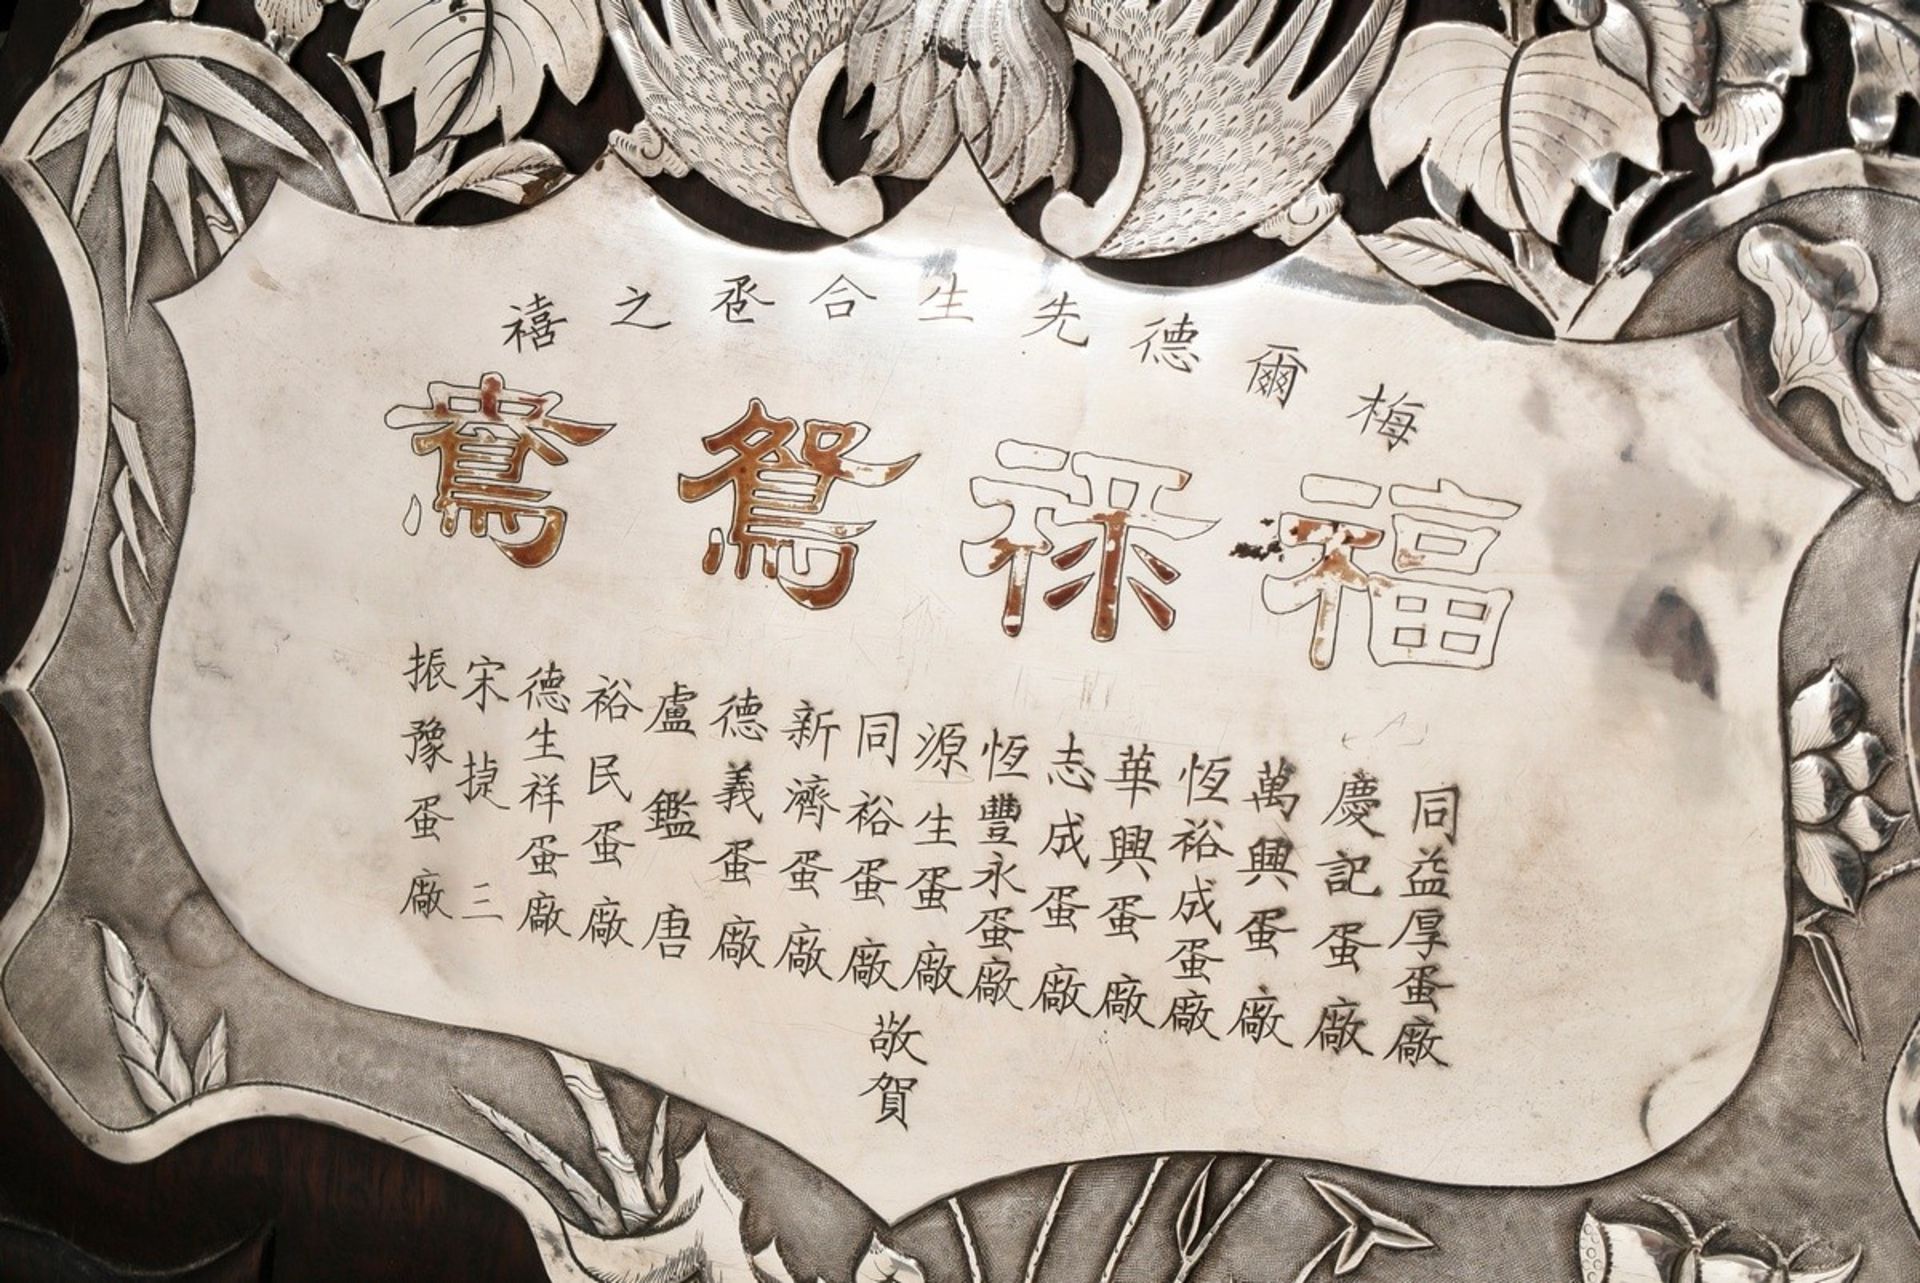 梅爾德先生合卺之禧
福祿鴛鴦
同益厚蛋廠
慶記蛋廠
萬興蛋廠
恆裕成蛋廠
華興蛋廠
志成蛋廠
恆豐永蛋廠
源生蛋廠
同裕蛋廠
新濟蛋廠
德義蛋廠
盧鑑唐
裕民蛋廠
德生祥蛋廠
宋捷三
振豫蛋廠
敬賀